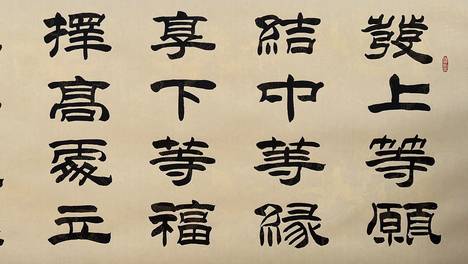 發上等願
結中等緣
享下等福
擇高處立